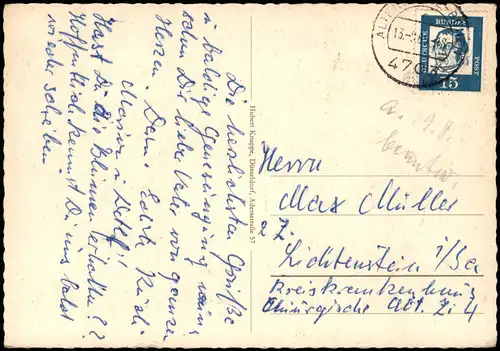 Die herzlichsten Grüße
u. baldige Genesung wün-
schen Dir lieber Vater von ganzen
Herzen. Deine Edith, Rudi
Marion u. Detlef!
Hast Du die Blumen erhalten??
Hoffentlich kannst Du uns bald
wieder schreiben.
Hubert Knuppe, Düsseldorf, Adersstraße 57
ALTENA
13.-8.
470
DEUTSCHE
BUNDES
POST
15
a. 19.8.
beantw.
Herrn
Max Müller
z. Z.
Lichtenstein i/Sa
Kreiskrankenhaus
Chirurgische Abt. Zi 4